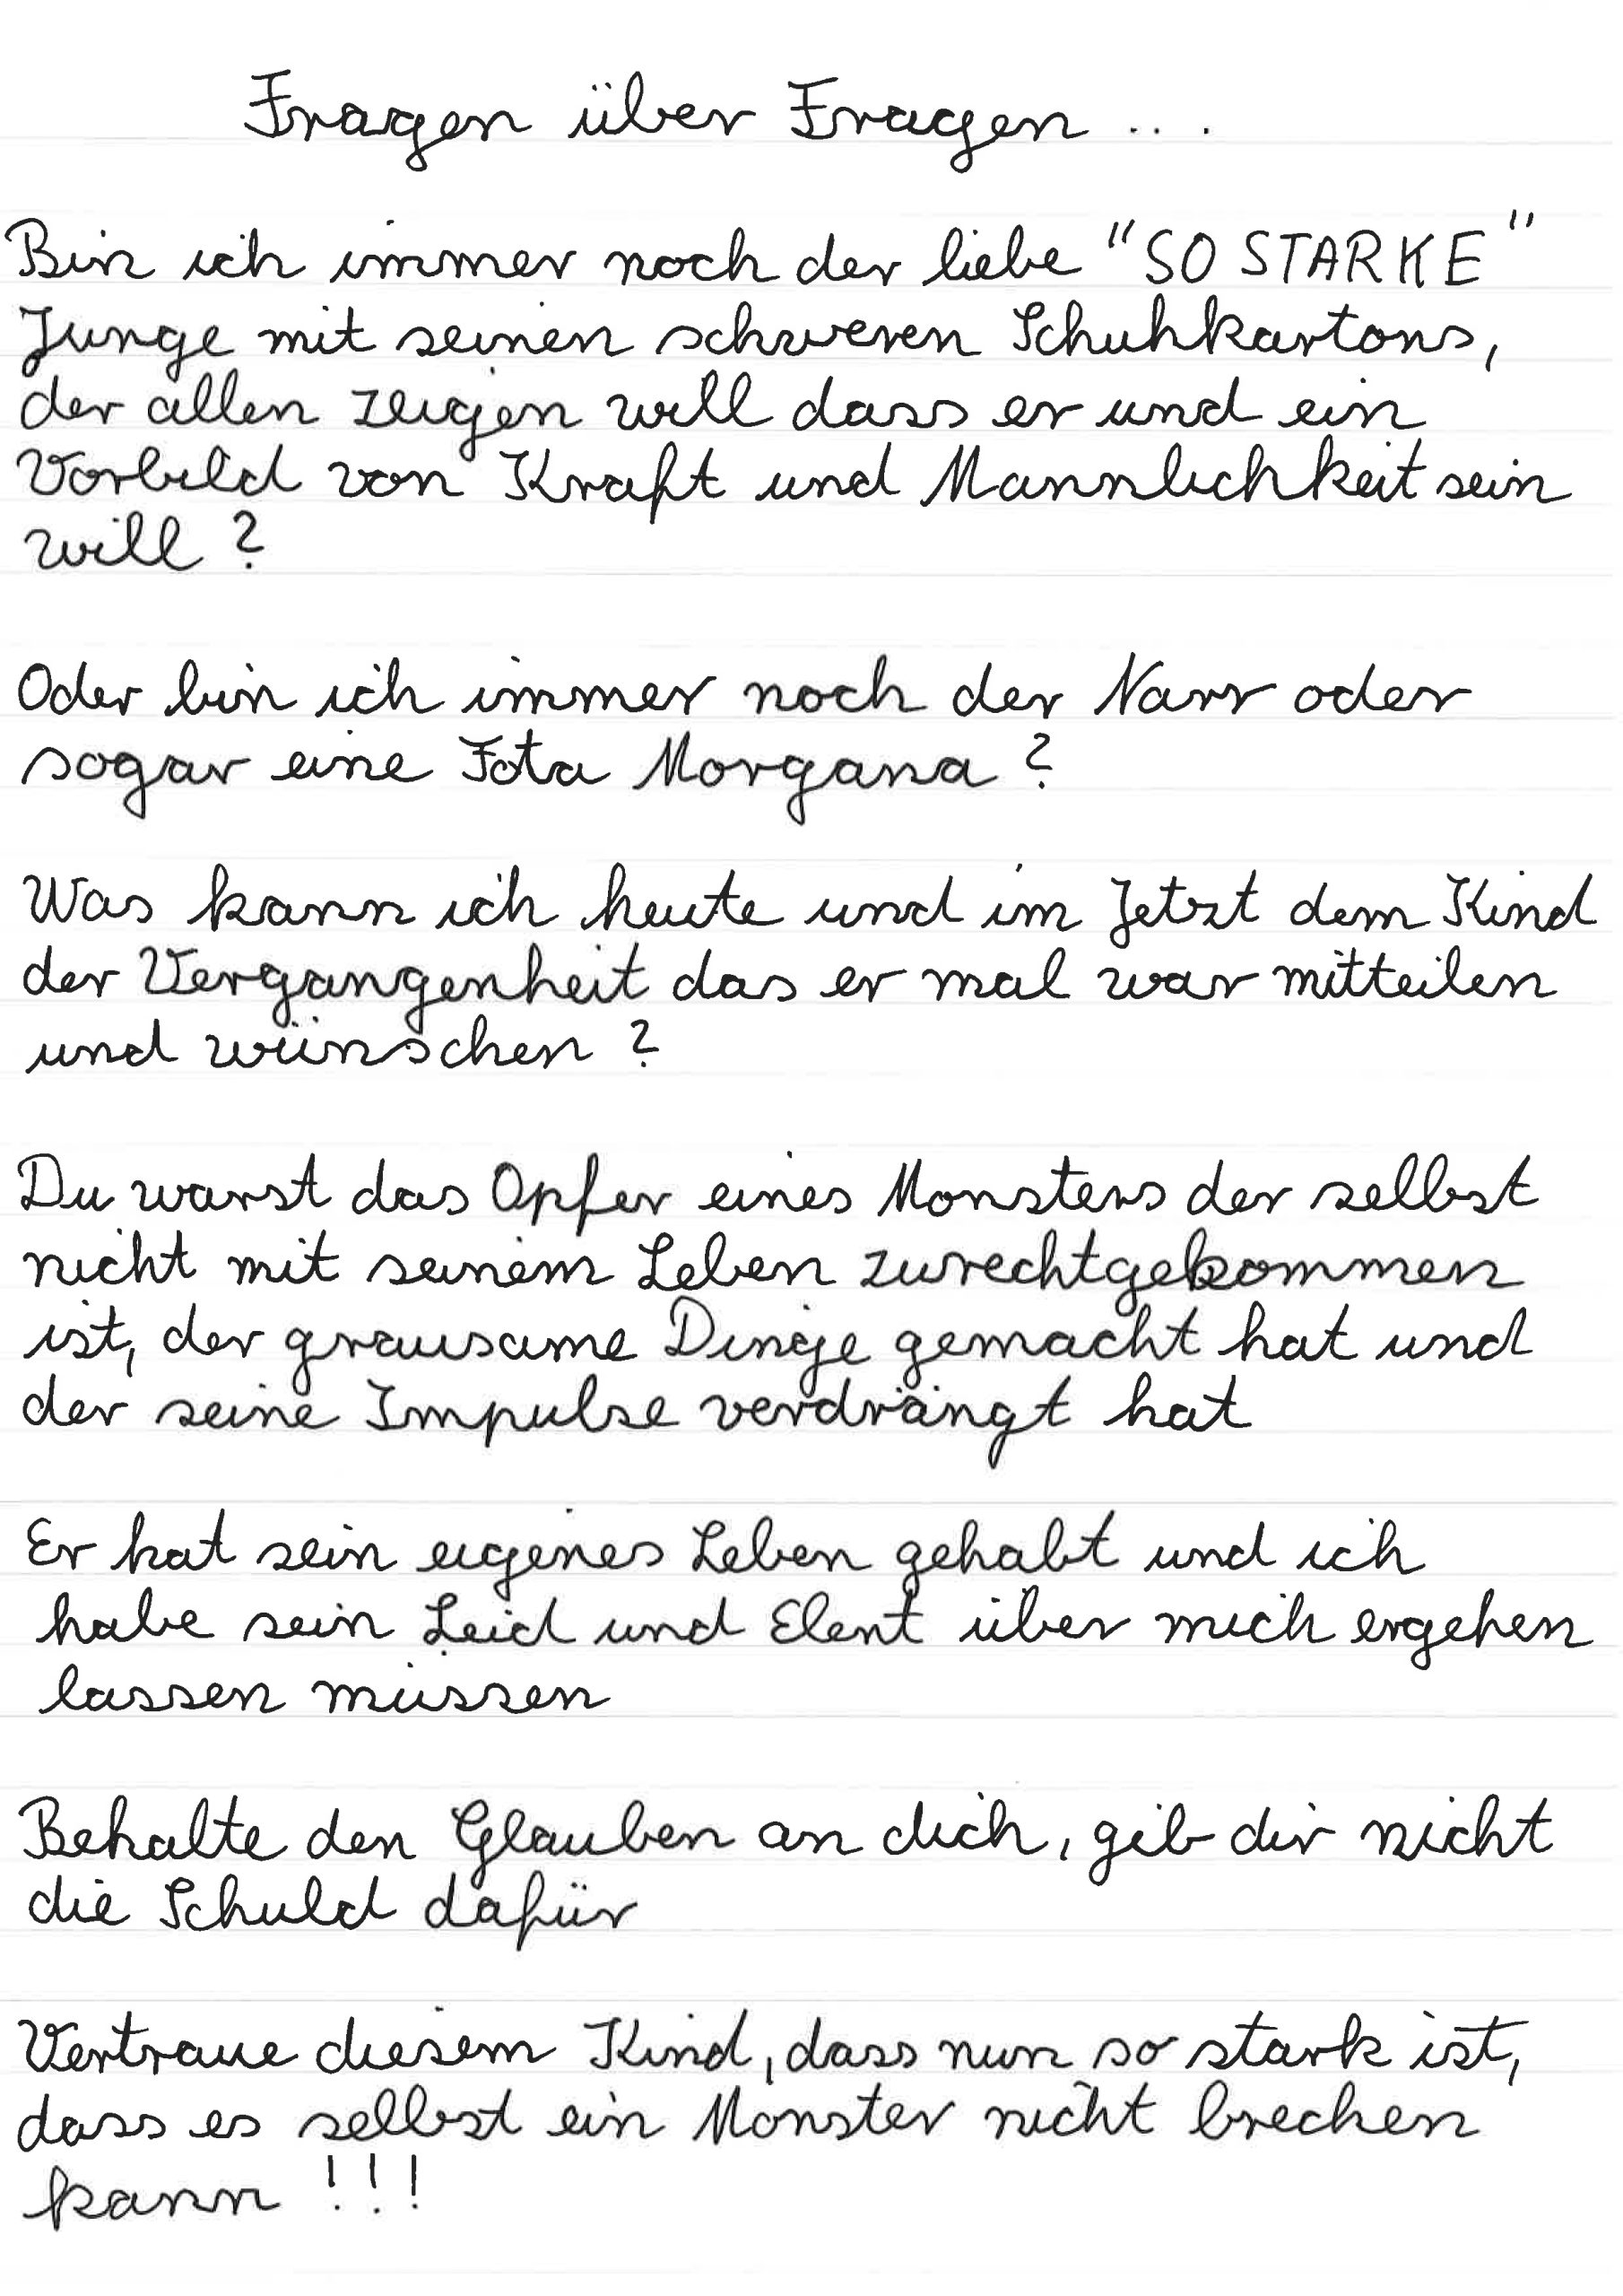 Fragen über Fragen ...
Bin ich immer noch der liebe "SO STARKE"
Junge mit seinen schweren Schuhkartons,
der allen zeigen will dass er und ein
Vorbild von Kraft und Mannlichkeit sein
will ?
Oder bin ich immer noch der Narr oder
sogar eine Fata Morgana ?
Was kann ich heute und im Jetzt dem Kind
der Vergangenheit das er mal war mitteilen
und wünschen ?
Du warst das Opfer eines Monsters der selbst
nicht mit seinem Leben zurechtgekommen
ist, der grausame Dinge gemacht hat und
der seine Impulse verdrängt hat
Er hat sein eigenes Leben gehabt und ich
habe sein Leid und Elent über mich ergehen
lassen müssen
Behalte den Glauben an dich, gib dir nicht
die Schuld dafür
Vertraue diesem Kind, dass nun so stark ist,
dass es selbst ein Monster nicht brechen
kann !!!